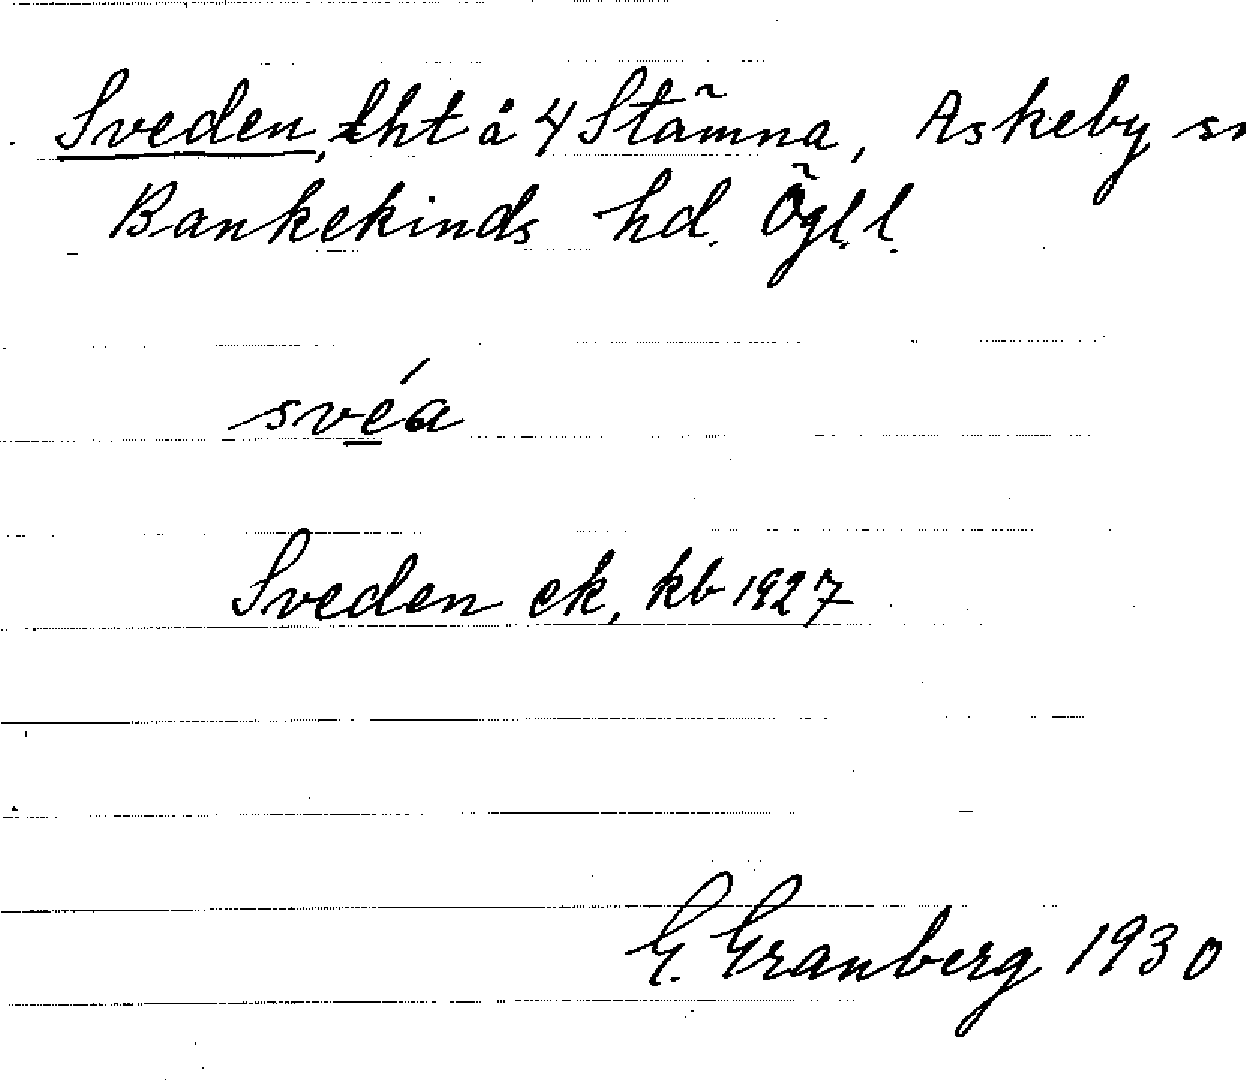 Sveden, lht å 4 Stämna, Askeby sn
Bankekinds hd. Ögl.l.
svéa
Sveden ek, kb 1927
G. Granberg 1930